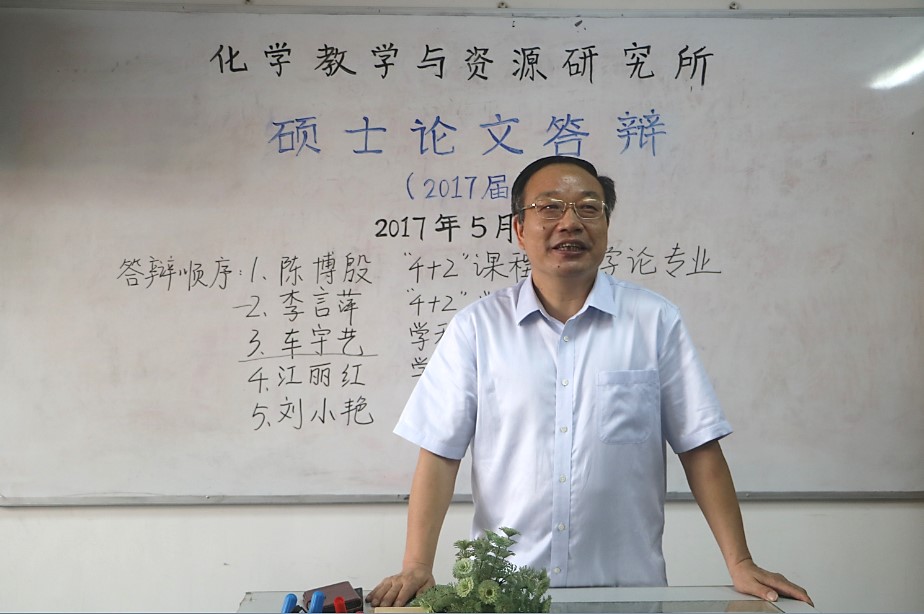 化学教学与资源研究所
硕士论文答辩
(2017届
2017年5月
答辩顺序:1、陈博殷 "4+2"课程 学论专业
2、李言萍 "4+2"
3、车宇艺 学
4、江丽红 学
5、刘小艳